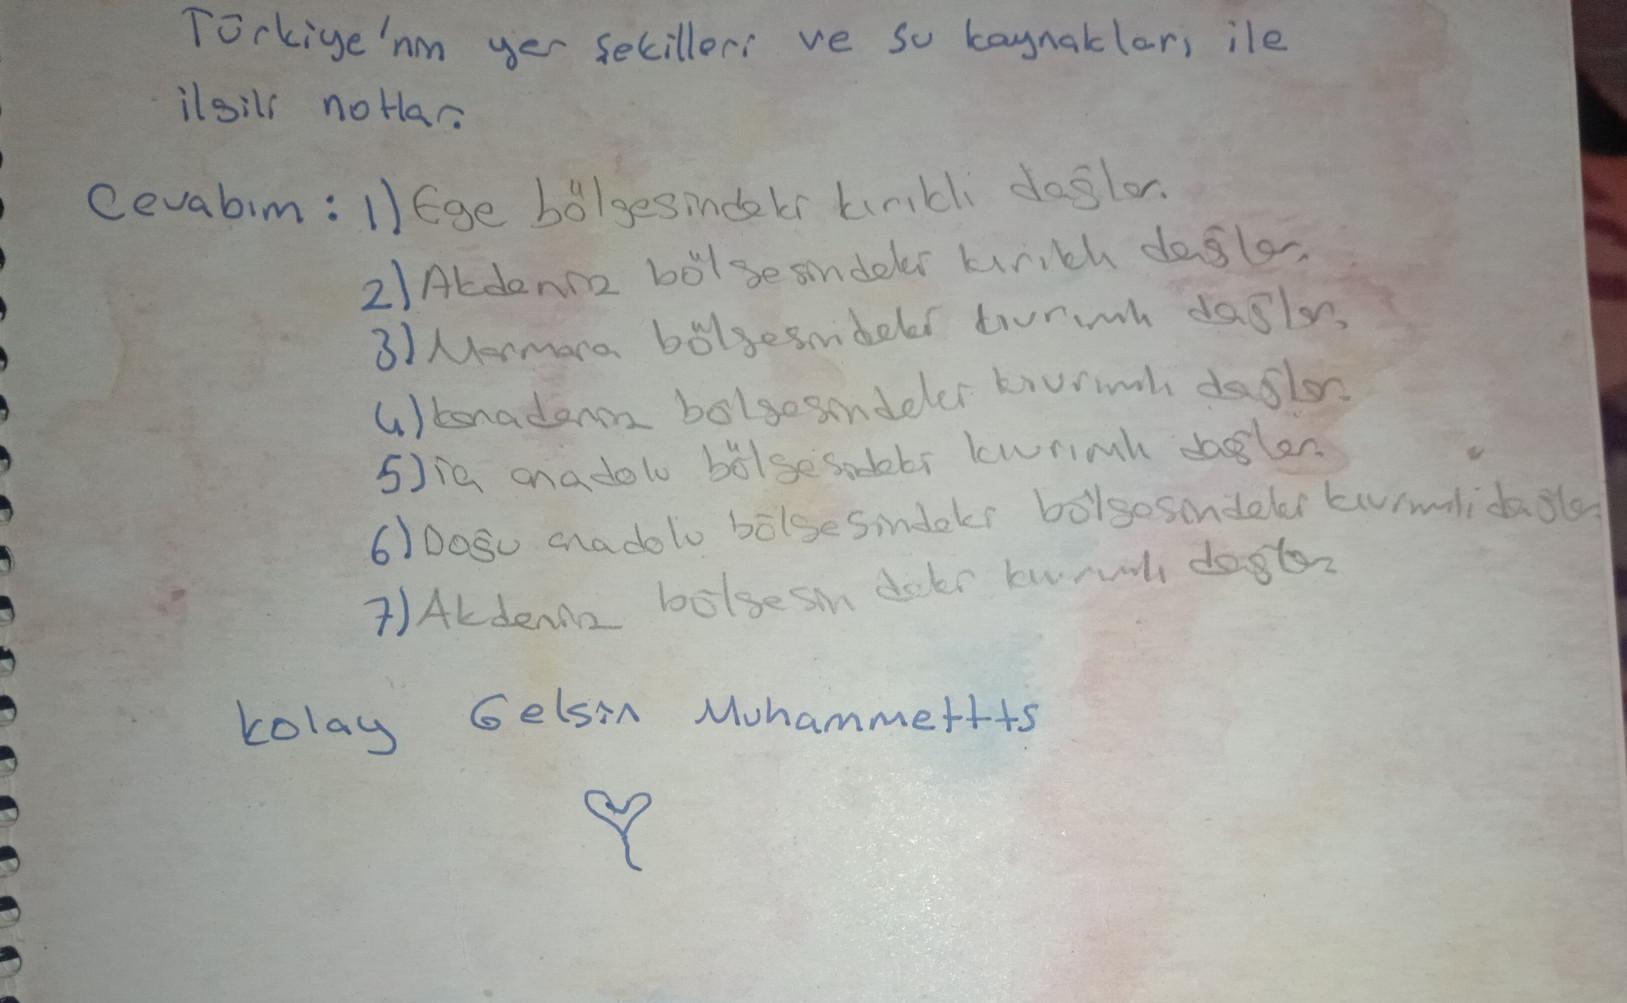 Türkiye'nin yer şekilleri ve su kaynakları ile
ilgili notlar:
Cevabım: 1) Ege bölgesindeki kırıklı dağlar.
2) Akdeniz bölgesindeki kırıklı dağlar.
3) Marmara bölgesindeki kıvrımlı dağlar.
4) karadeniz bölgesindeki kıvrımlı dağlar.
5) iç anadolu bölgesindeki kıvrımlı dağlar.
6) Doğu anadolu bölgesindeki bölgesindeki kıvrımlı dağlar.
7) Akdeniz bölgesin deki kıvrımlı dağlar
kolay Gelsin Muhammetttts